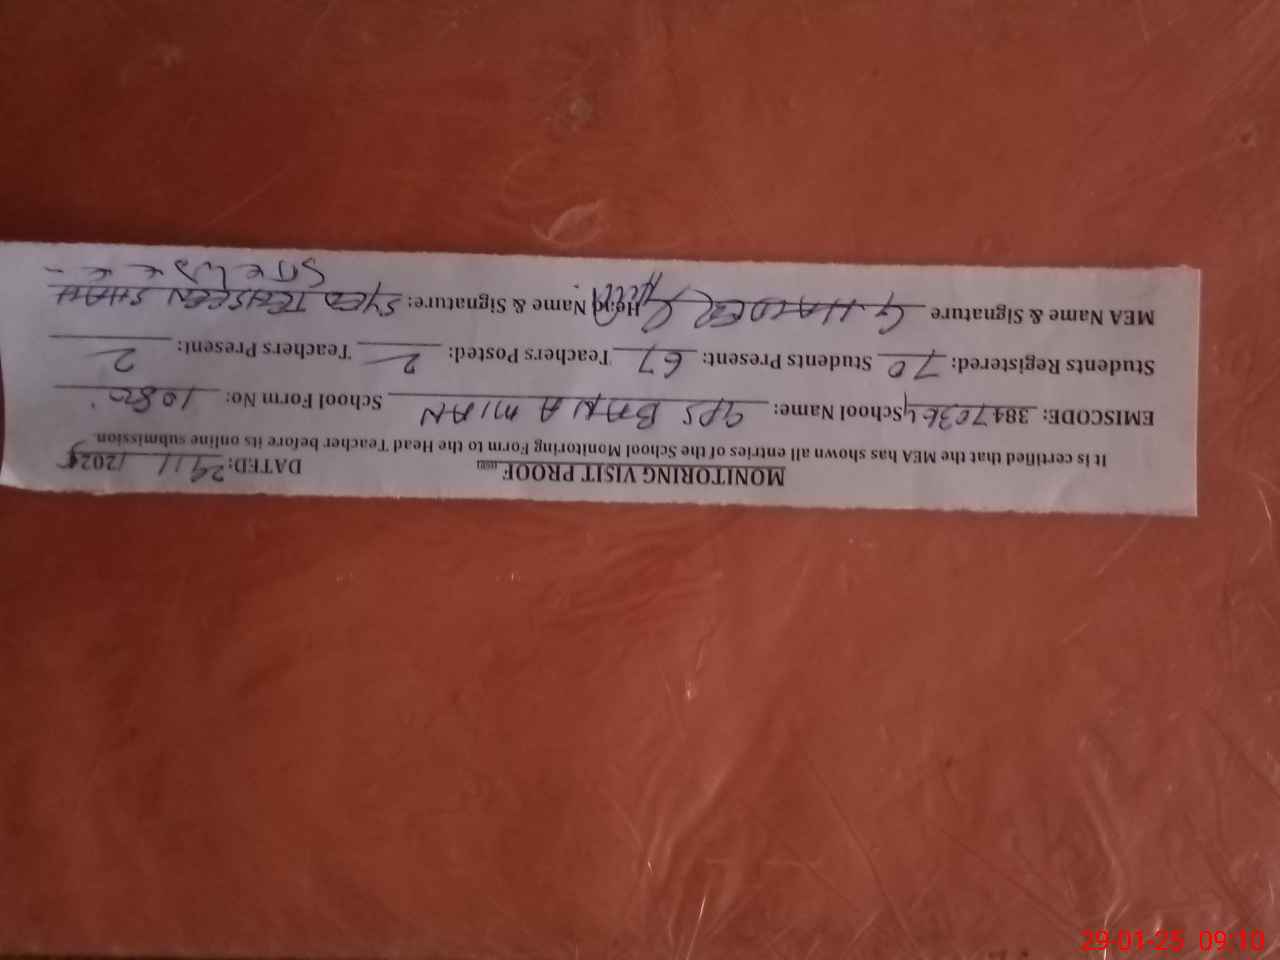 MONITORING VISIT PROOF DATED: 29/1/2025
It is certified that the MEA has shown all entries of the School Monitoring Form to the Head Teacher before its online submission.
EMISCODE: 38470364 School Name: GPS BAN A MIAN School Form No: 1080
Students Registered: 70 Students Present: 67 Teachers Posted: 2 Teachers Present: 2
MEA Name & Signature G. HAIDER Head Name & Signature: SYED TEHSEEN SHAH
29-01-25 09:10